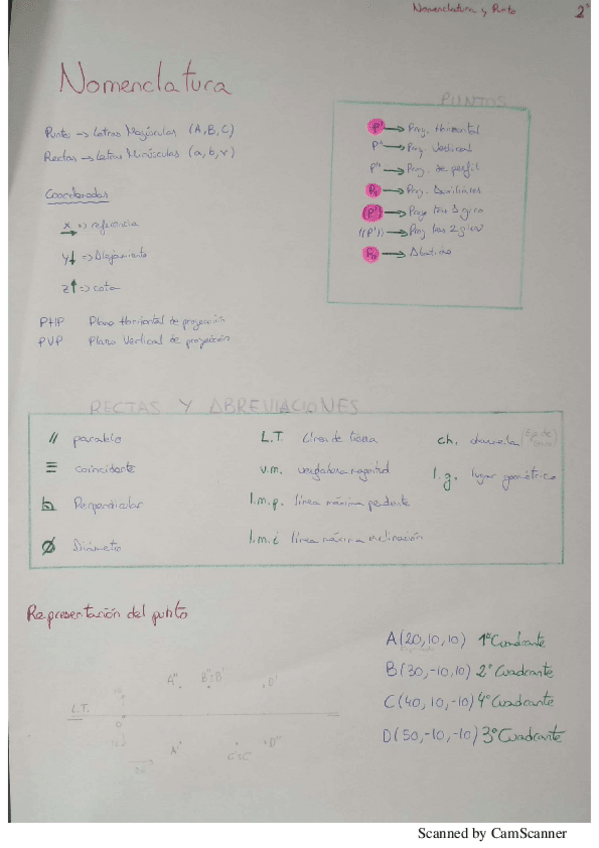 Nomenclatura y Punto 2º
Nomenclatura
Punto → Letras Mayúsculas (A, B, C)
Rectas → Letras Minúsculas (a, b, r)
Coordenadas
x => referencia
y↓ => Alejamiento
z↑ => cota
PHP Plano Horizontal de proyección
PVP Plano Vertical de proyección
PUNTOS
P' → Proy. Horizontal
P'' → Proy. Vertical
P''' → Proy. de perfil
→ Proy. Auxiliares
(P') → Proy tras 1 giro
((P')) → Proy tras 2 giros
→ Abatirlo
RECTAS Y ABREVIACIONES
// paralelo
≡ coincidente
Perpendicular
Ø Diámetro
L.T. Línea de tierra
v.m. verdadera magnitud
l.m.p. línea máxima pendiente
l.m.i línea máxima inclinación
ch. charnela
l.g. lugar geométrico
Representación del punto
A(20,10,10) 1º Cuadrante
B(30,-10,10) 2º Cuadrante
C(40,10,-10) 4º Cuadrante
D(50,-10,-10) 3º Cuadrante
A'' B''≡B' D'
L.T.
0
A' C'≡C'' D''
Scanned by CamScanner